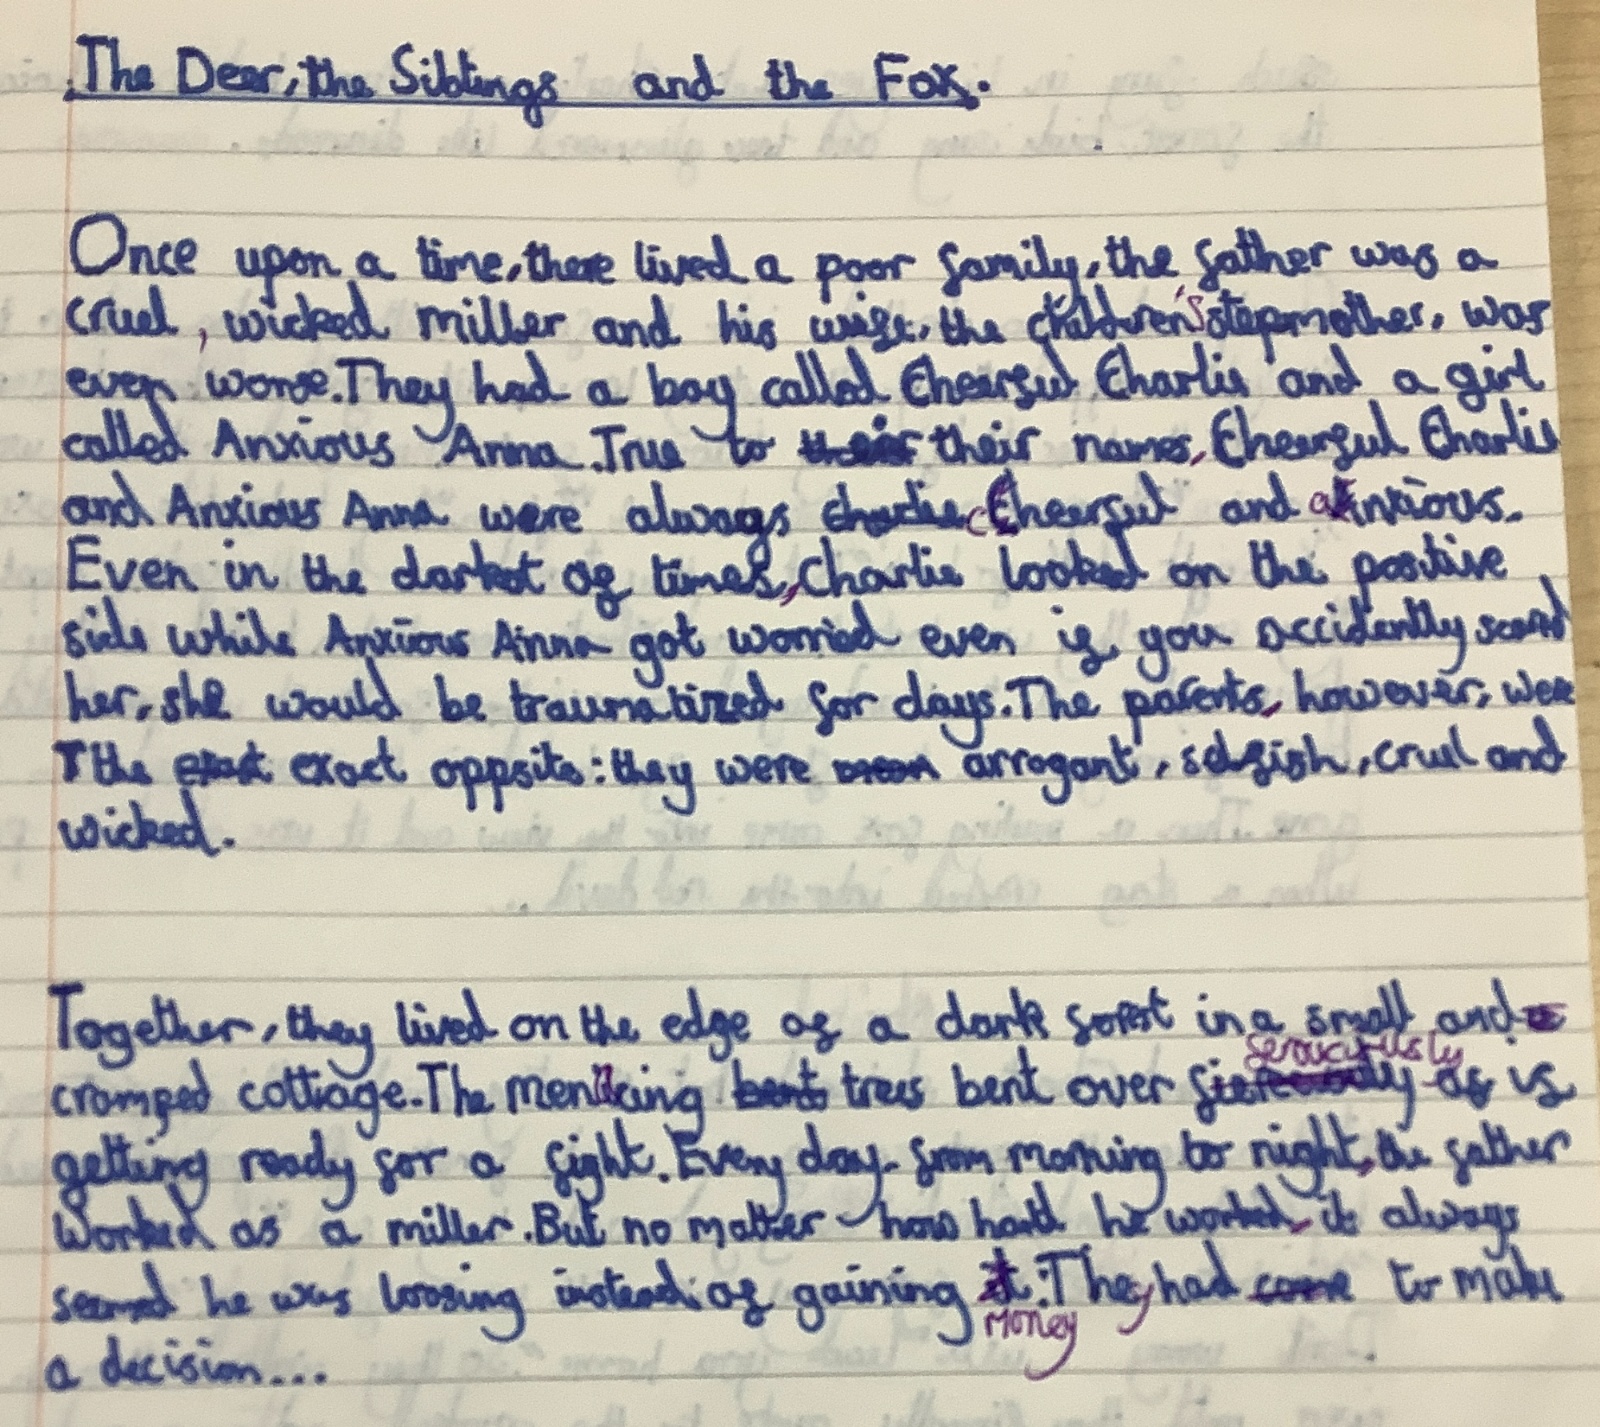 The Deer, the Siblings and the Fox.
Once upon a time, there lived a poor family, the father was a
cruel, wicked miller and his wife, the children's stepmother, was
even worse. They had a boy called Cheerful Charlie and a girl
called Anxious Anna. True to their their names, Cheerful Charlie
and Anxious Anna were always charlie cheerful and anxious.
Even in the darkest of times, Charlie looked on the positive
side while Anxious Anna got worried even if you accidently scared
her, she would be traumatized for days. The parents, however, were
the exact exact oppsite: they were mean arrogant, selfish, cruel and
wicked.
Together, they lived on the edge of a dark forest in a small and
ferouciously
cramped cottage. The menacing bent trees bent over as if
getting ready for a fight. Every day, from morning to night, the father
worked as a miller. But no matter how hard he worked, it always
seemed he was loosing instead of gaining it. They had come to make
money
a decision...